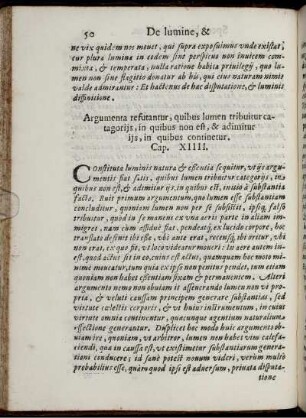 50 De lumine, &
ne vix quidem nos mouet, qui supra exposuimus vnde existat,
cur plura lumina in eodem sint perspicuo non inuicem com-
mixta, & temperata, nulla ratione habita priuilegij, quo la-
men non sine flagitio donatur ab his, qui eius naturam nimis
valde admirantur: Et hactenus de hac disputatione, & luminis
diffinitione.
Argumenta refutantur, quibus lumen tribuitur ca-
tagorijs, in quibus non est, & adimitur
ijs, in quibus continetur.
Cap. XIIII.
Constituta luminis natura & essentia sequitur, vt ijs argu-
mentis fiat satis, quibus lumen tribuitur categorijs, in
quibus non est, & adimitur ijs, in quibus est, initio à substantia
facto. Fuit primum argumentum, quo lumen esse substantiam
concluditur, quoniam lumen non per se subsistit, ipsoque falso
tribuitur, quod in se manens ex vna aeris parte in aliam im-
migret, nam cum accidit fiat, pendeatque, ex lucido corpore, hoc
translato desinit ibi esse, vbi ante erat, recensque, ibi oritur, vbi
non erat, ex quo fit, vt loca videatur moueri: In aere autem in-
est, quod actus sit in eo, cuius est actus, quamquam hoc moto mi-
nime moueatur, tum quia ex ipso non pariter pendet, tum etiam
quoniam non habet essentiam fixam & permanentem. Alteri
argumento nemo est qui assentiatur in asserendo lumen non vt pro-
pria, & veluti caussam principem generare substantias, sed
virtute cælestis corporis, & vt huius instrumentum, in cuius
virtute omnia continentur, quæcunque agentium naturalium
assectione generantur. Duplici hac modo huic argumento ob-
uiam itur, quoniam, vt arbitror, lumen non habet vim calefa-
ciendi, qua in caussa est, vt existimetur substantiarum genera-
tioni conducere; id sanè potest nonum videri, verùm multò
probabilius esse, quàm quod ipsi est aduersum, priuata disputa-
tione